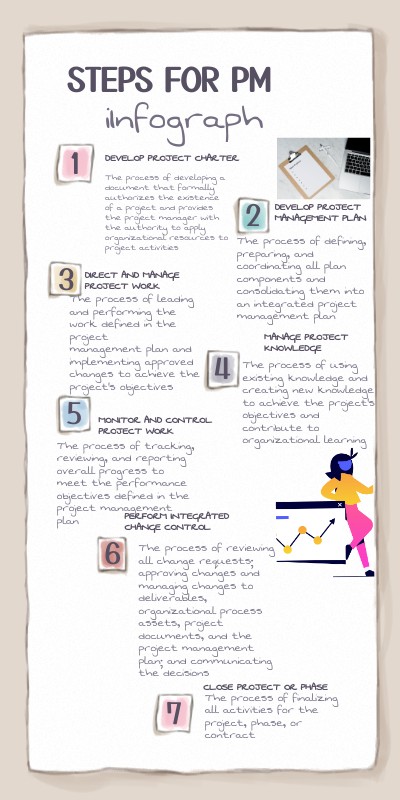 STEPS FOR PM
iInfograph
1
DEVELOP PROJECT CHARTER
The process of developing a
document that formally
authorizes the existence
of a project and provides
the project manager with
the authority to apply
organizational resources to
project activities
2
DEVELOP PROJECT
MANAGEMENT PLAN
The process of defining,
preparing, and
coordinating all plan
components and
consolidating them into
an integrated project
management plan
3
DIRECT AND MANAGE
PROJECT WORK
The process of leading
and performing the
work defined in the
project
management plan and
implementing approved
changes to achieve the
project's objectives
4
MANAGE PROJECT
KNOWLEDGE
The process of using
existing knowledge and
creating new knowledge
to achieve the project's
objectives and
contribute to
organizational learning
5
MONITOR AND CONTROL
PROJECT WORK
The process of tracking,
reviewing, and reporting
overall progress to
meet the performance
objectives defined in the
project management
plan
6
PERFORM INTEGRATED
CHANGE CONTROL
The process of reviewing
all change requests;
approving changes and
managing changes to
deliverables,
organizational process
assets, project
documents, and the
project management
plan; and communicating
the decisions
7
CLOSE PROJECT OR PHASE
The process of finalizing
all activities for the
project, phase, or
contract